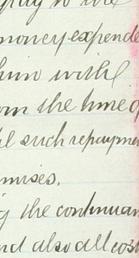 money expende
him with
om the time of
til such repayme
mises.
g the continuan
nd also all cost